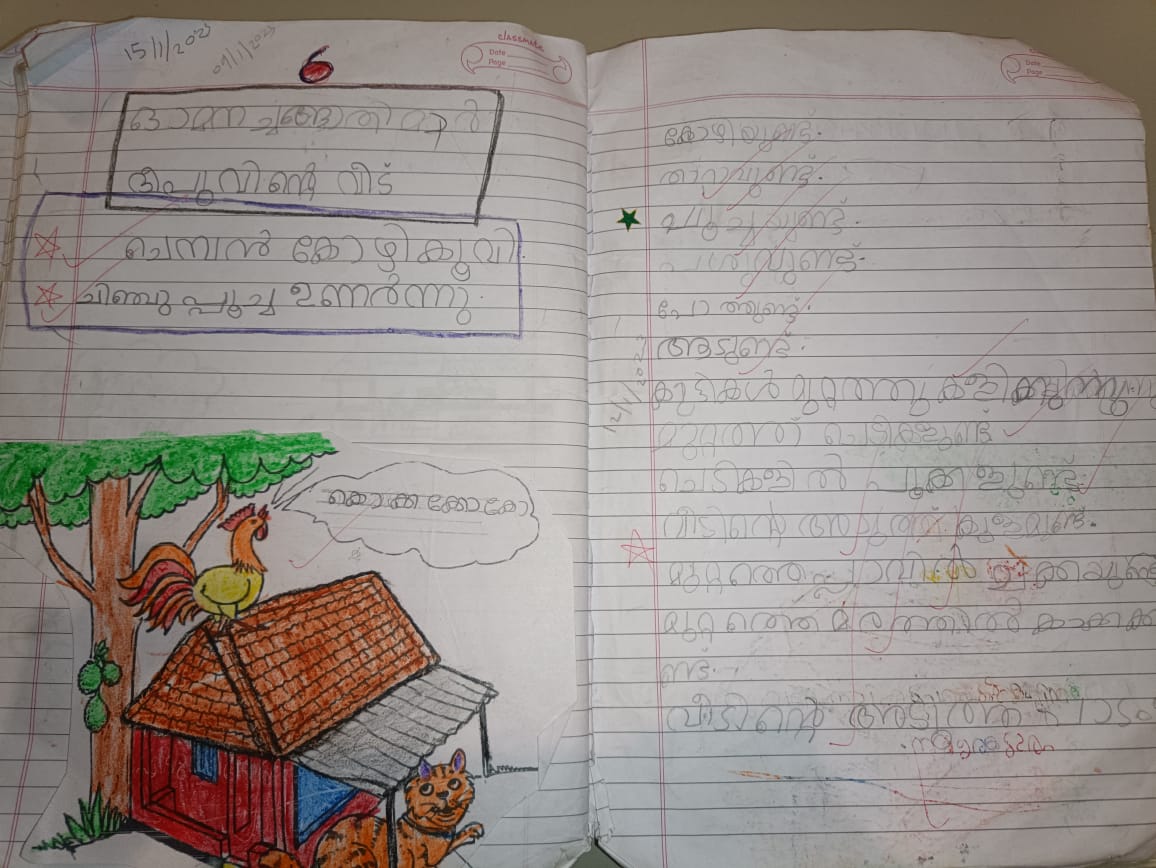 15/1/2023
09/1/2023
6
classmate
Date
Page
ഓമന ചങ്ങാതിമാർ
ദീപുവിന്റെ വീട്
ചെമ്പൻ കോഴി കൂവി.
ചിഞ്ചു പൂച്ച ഉണർന്നു.
കൊക്കക്കോകോ
Date
Page
കോഴിയുണ്ട്.
താറാവുണ്ട്.
പൂച്ചയുണ്ട്.
പശുവുണ്ട്.
പോത്തുണ്ട്.
ആടുണ്ട്.
12/1/2023
കുട്ടികൾ മുറ്റത്തു കളിക്കുന്നു.
മുറ്റത്ത് ചെടികളുണ്ട്
ചെടികളിൽ പൂക്കളുണ്ട്.
വീടിന്റെ അടുത്ത് കുളമുണ്ട്.
മുറ്റത്തെ പ്ലാവിൽ
മുറ്റത്തെ മരത്തിൽ
ണ്ട്.
വീടിന്റെ അടുത്ത്